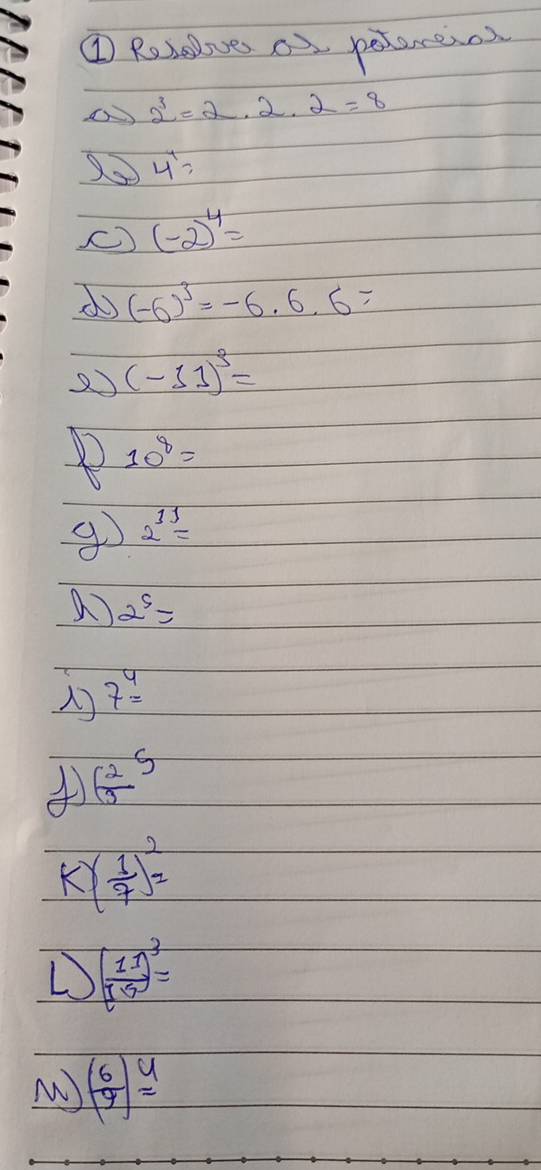 ① Resolva as potencias
a) 2³ = 2 . 2 . 2 = 8
b) 4⁴ =
c) (-2)⁴ =
d) (-6)³ = -6 . 6 . 6 =
e) (-11)³ =
f) 10⁸ =
g) 2¹¹ =
h) 2⁵ =
i) 7⁴ =
j) (2/3 ⁵
K) (1/7)² =
L) (11/15)³ =
M) (6/9)⁴ =